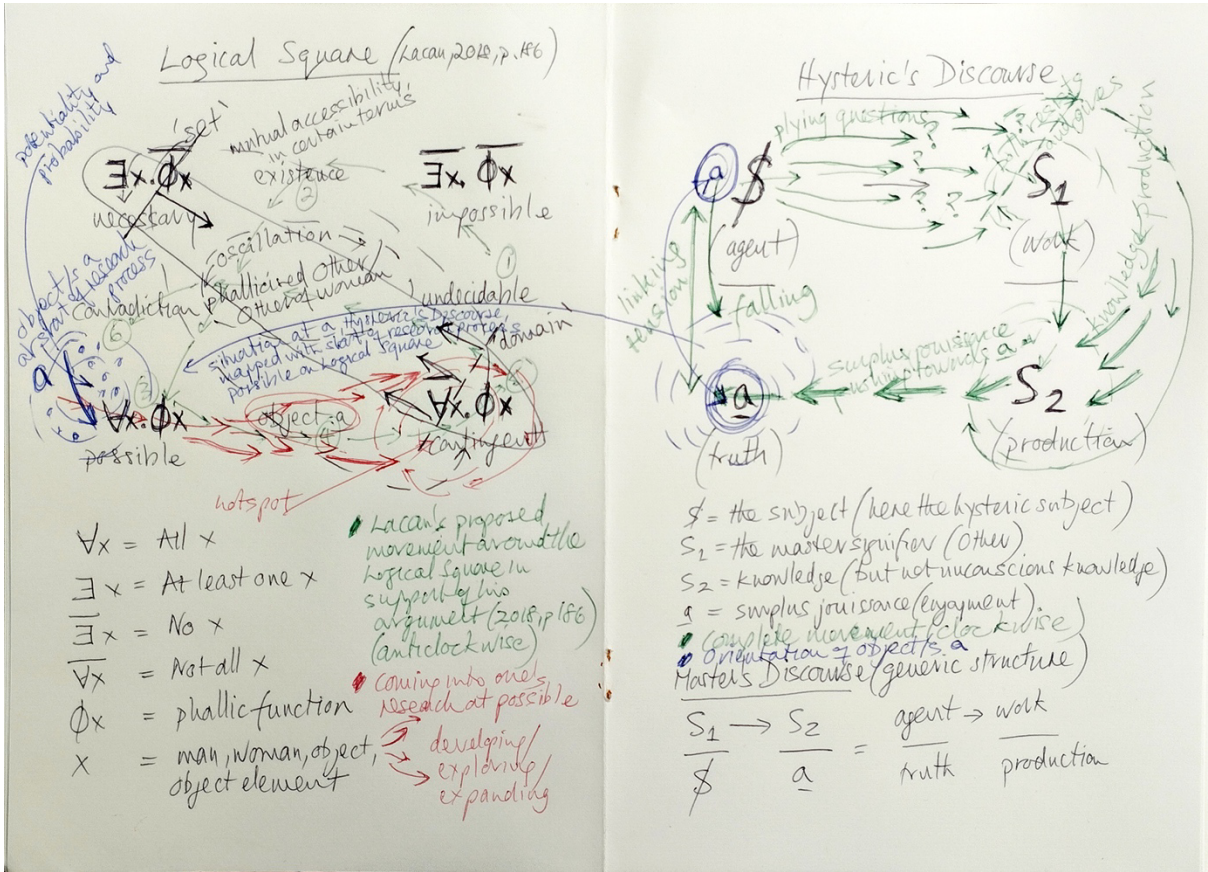 Logical Square (Lacan, 2018, p.186)
potentiality and
probability
'set'
mutual accessibility
in certain terms
existence
②
∃x.Φ̅x̅
necessary
∃̅x̅.Φ̅x̅
impossible
①
oscillation
phallicized Other
Other of woman
undecidable
domain
object/s a
at start of research
process
contradiction
⑥
situation at a Hysteric's Discourse,
mapped with start of research process,
possible on Logical Square
a
③
∀x.Φx
possible
object a
④
∀̅x̅.Φx
contingent
hotspot
∀x = All x
∃x = At least one x
∃̅x̅ = No x
∀̅x̅ = Not all x
Φx = phallic function
x = man, woman, object,
object element
Lacan's proposed
movement around the
Logical Square in
support of his
argument (2018, p186)
(anticlockwise)
coming into one's
research at possible
developing/
exploring/
expanding
Hysteric's Discourse
plying questions
? ? ? ? ? ?
production
a $
(agent)
S₁
(work)
linking
tension
falling
knowledge
surplus jouissance
rushing towards a
a
(truth)
S₂
(production)
$ = the subject (here the hysteric subject)
S₁ = the master signifier (Other)
S₂ = knowledge (but not unconscious knowledge)
a = surplus jouissance (enjoyment).
complete movement (clockwise)
Orientation of object/s a
Master's Discourse (generic structure)
S₁ → S₂ = agent → work
$ a truth production